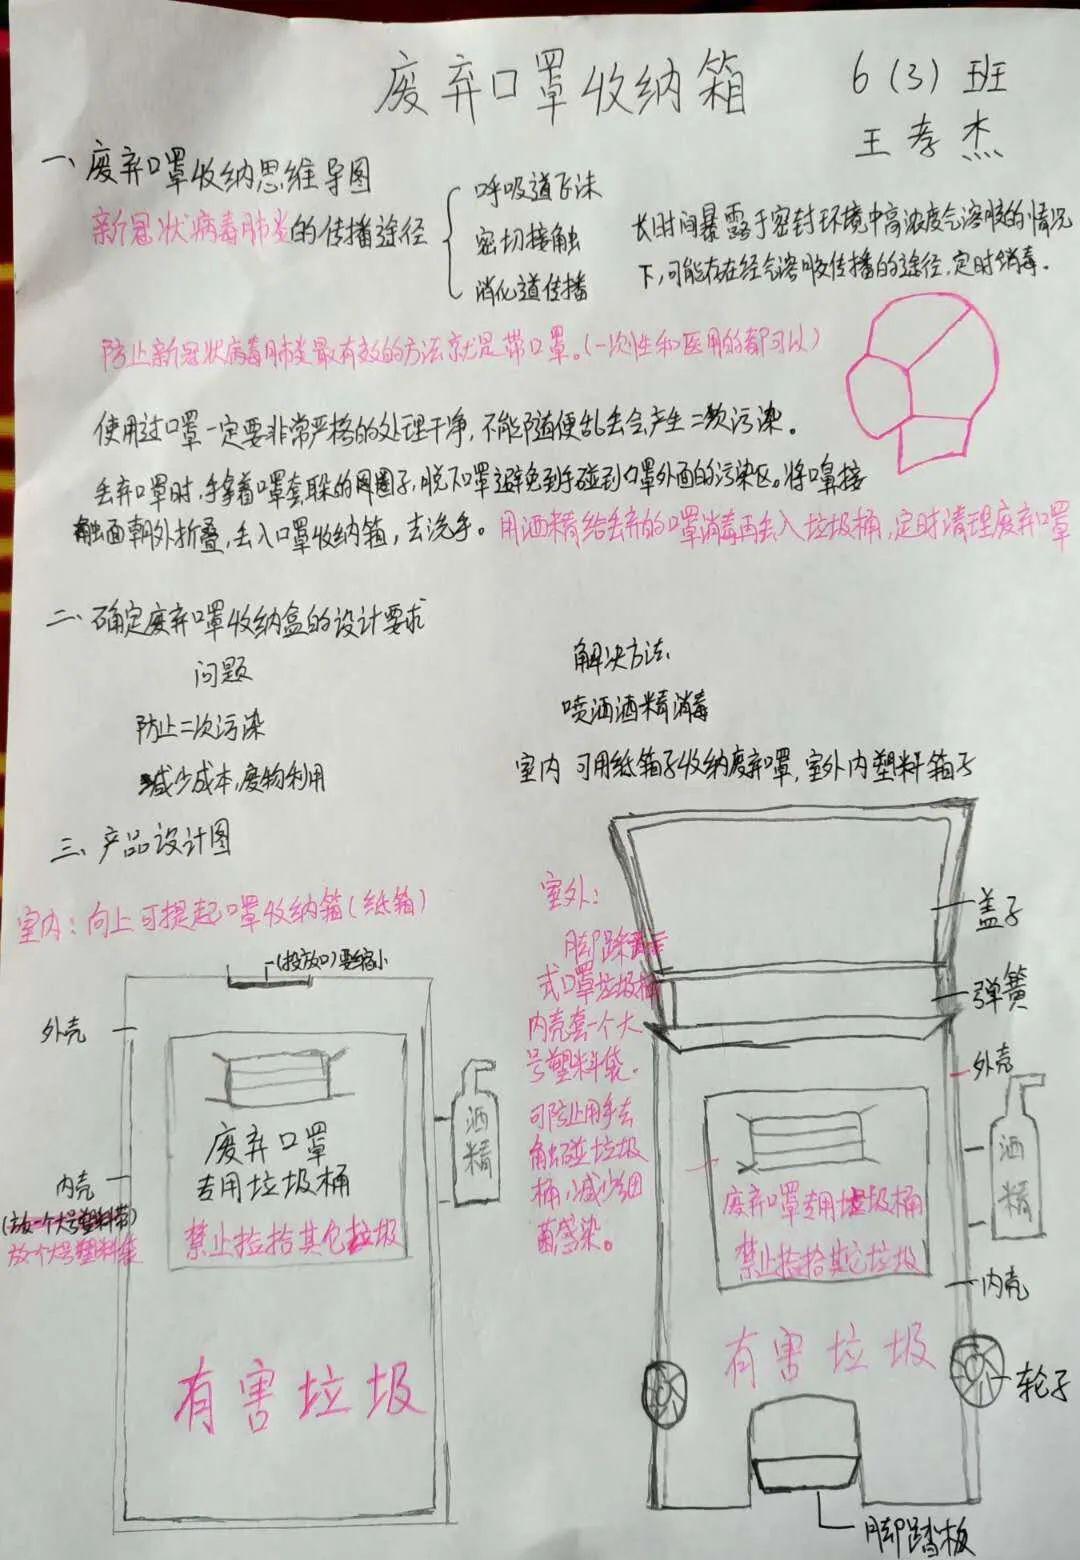 废弃口罩收纳箱
6(3)班
王孝杰
一、废弃口罩收纳思维导图
新冠状病毒肺炎的传播途径
呼吸道飞沫
密切接触
消化道传播
长时间暴露于密封环境中高浓度气溶胶的情况
下,可能存在经气溶胶传播的途径,定时消毒.
防止新冠状病毒肺炎最有效的方法就是带口罩。(一次性和医用的都可以)
使用过口罩一定要非常严格的处理干净,不能随便乱丢会产生二次污染。
丢弃口罩时,手拿着口罩套躲的圈子,脱下口罩避免到手碰到口罩外面的污染区。将口鼻接
触面朝外折叠,丢入口罩收纳箱,去洗手。用酒精给丢弃的口罩消毒再丢入垃圾桶,定时清理废弃口罩
二、确定废弃口罩收纳盒的设计要求
问题
解决方法
防止二次污染
喷洒酒精消毒
减少成本,废物利用
室内 可用纸箱子收纳废弃口罩,室外内塑料箱子
三、产品设计图
室内:向上可提起口罩收纳箱(纸箱)
(投放口)要缩小
外壳
内壳
放个大号塑料袋
废弃口罩
专用垃圾桶
禁止捡拾其它垃圾
有害垃圾
酒精
室外:
脚踩
式口罩垃圾桶
内壳套一个大
号塑料袋.
可防止用手去
触碰垃圾
桶,减少细
菌感染。
盖子
弹簧
外壳
废弃口罩专用垃圾桶
禁止捡拾其它垃圾
有害垃圾
酒精
内壳
轮子
脚踏板